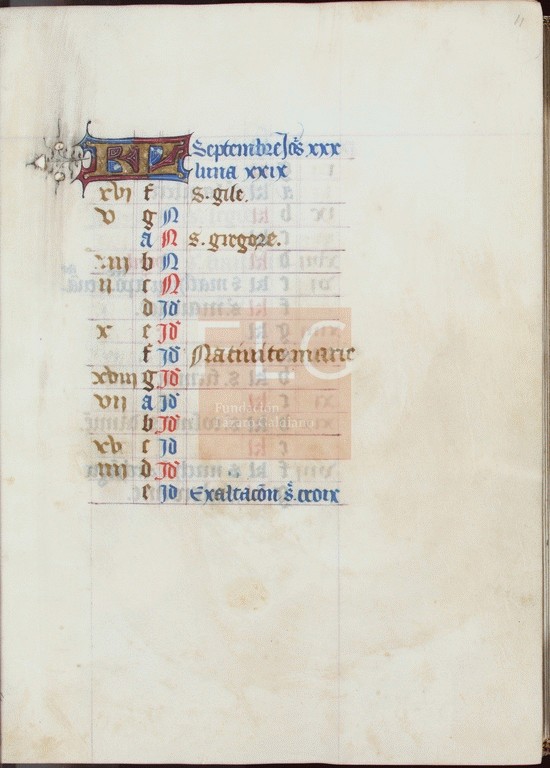 11
KL Septembre Jo͛s xxx
luna xxix
xvi f S. gile.
v g N
a N S. gregore.
xiii b N
ii c N
d Jd
x e Jd
f Jd Nativite marie
xviii g Jd
vii a Jd
b Jd
xv c Jd
iiii d Jd
e Jd Exaltacōn S. croix
FLG
Fundación
Lázaro Galdiano